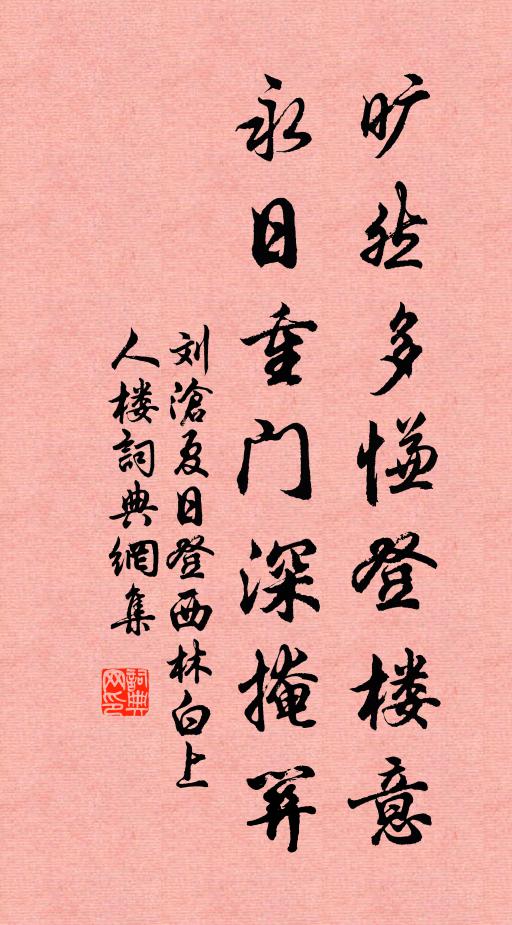 旷然多慊登楼意
永日重门深掩关
刘滄夏日登西林白上
人楼詞典網集
詞典网印